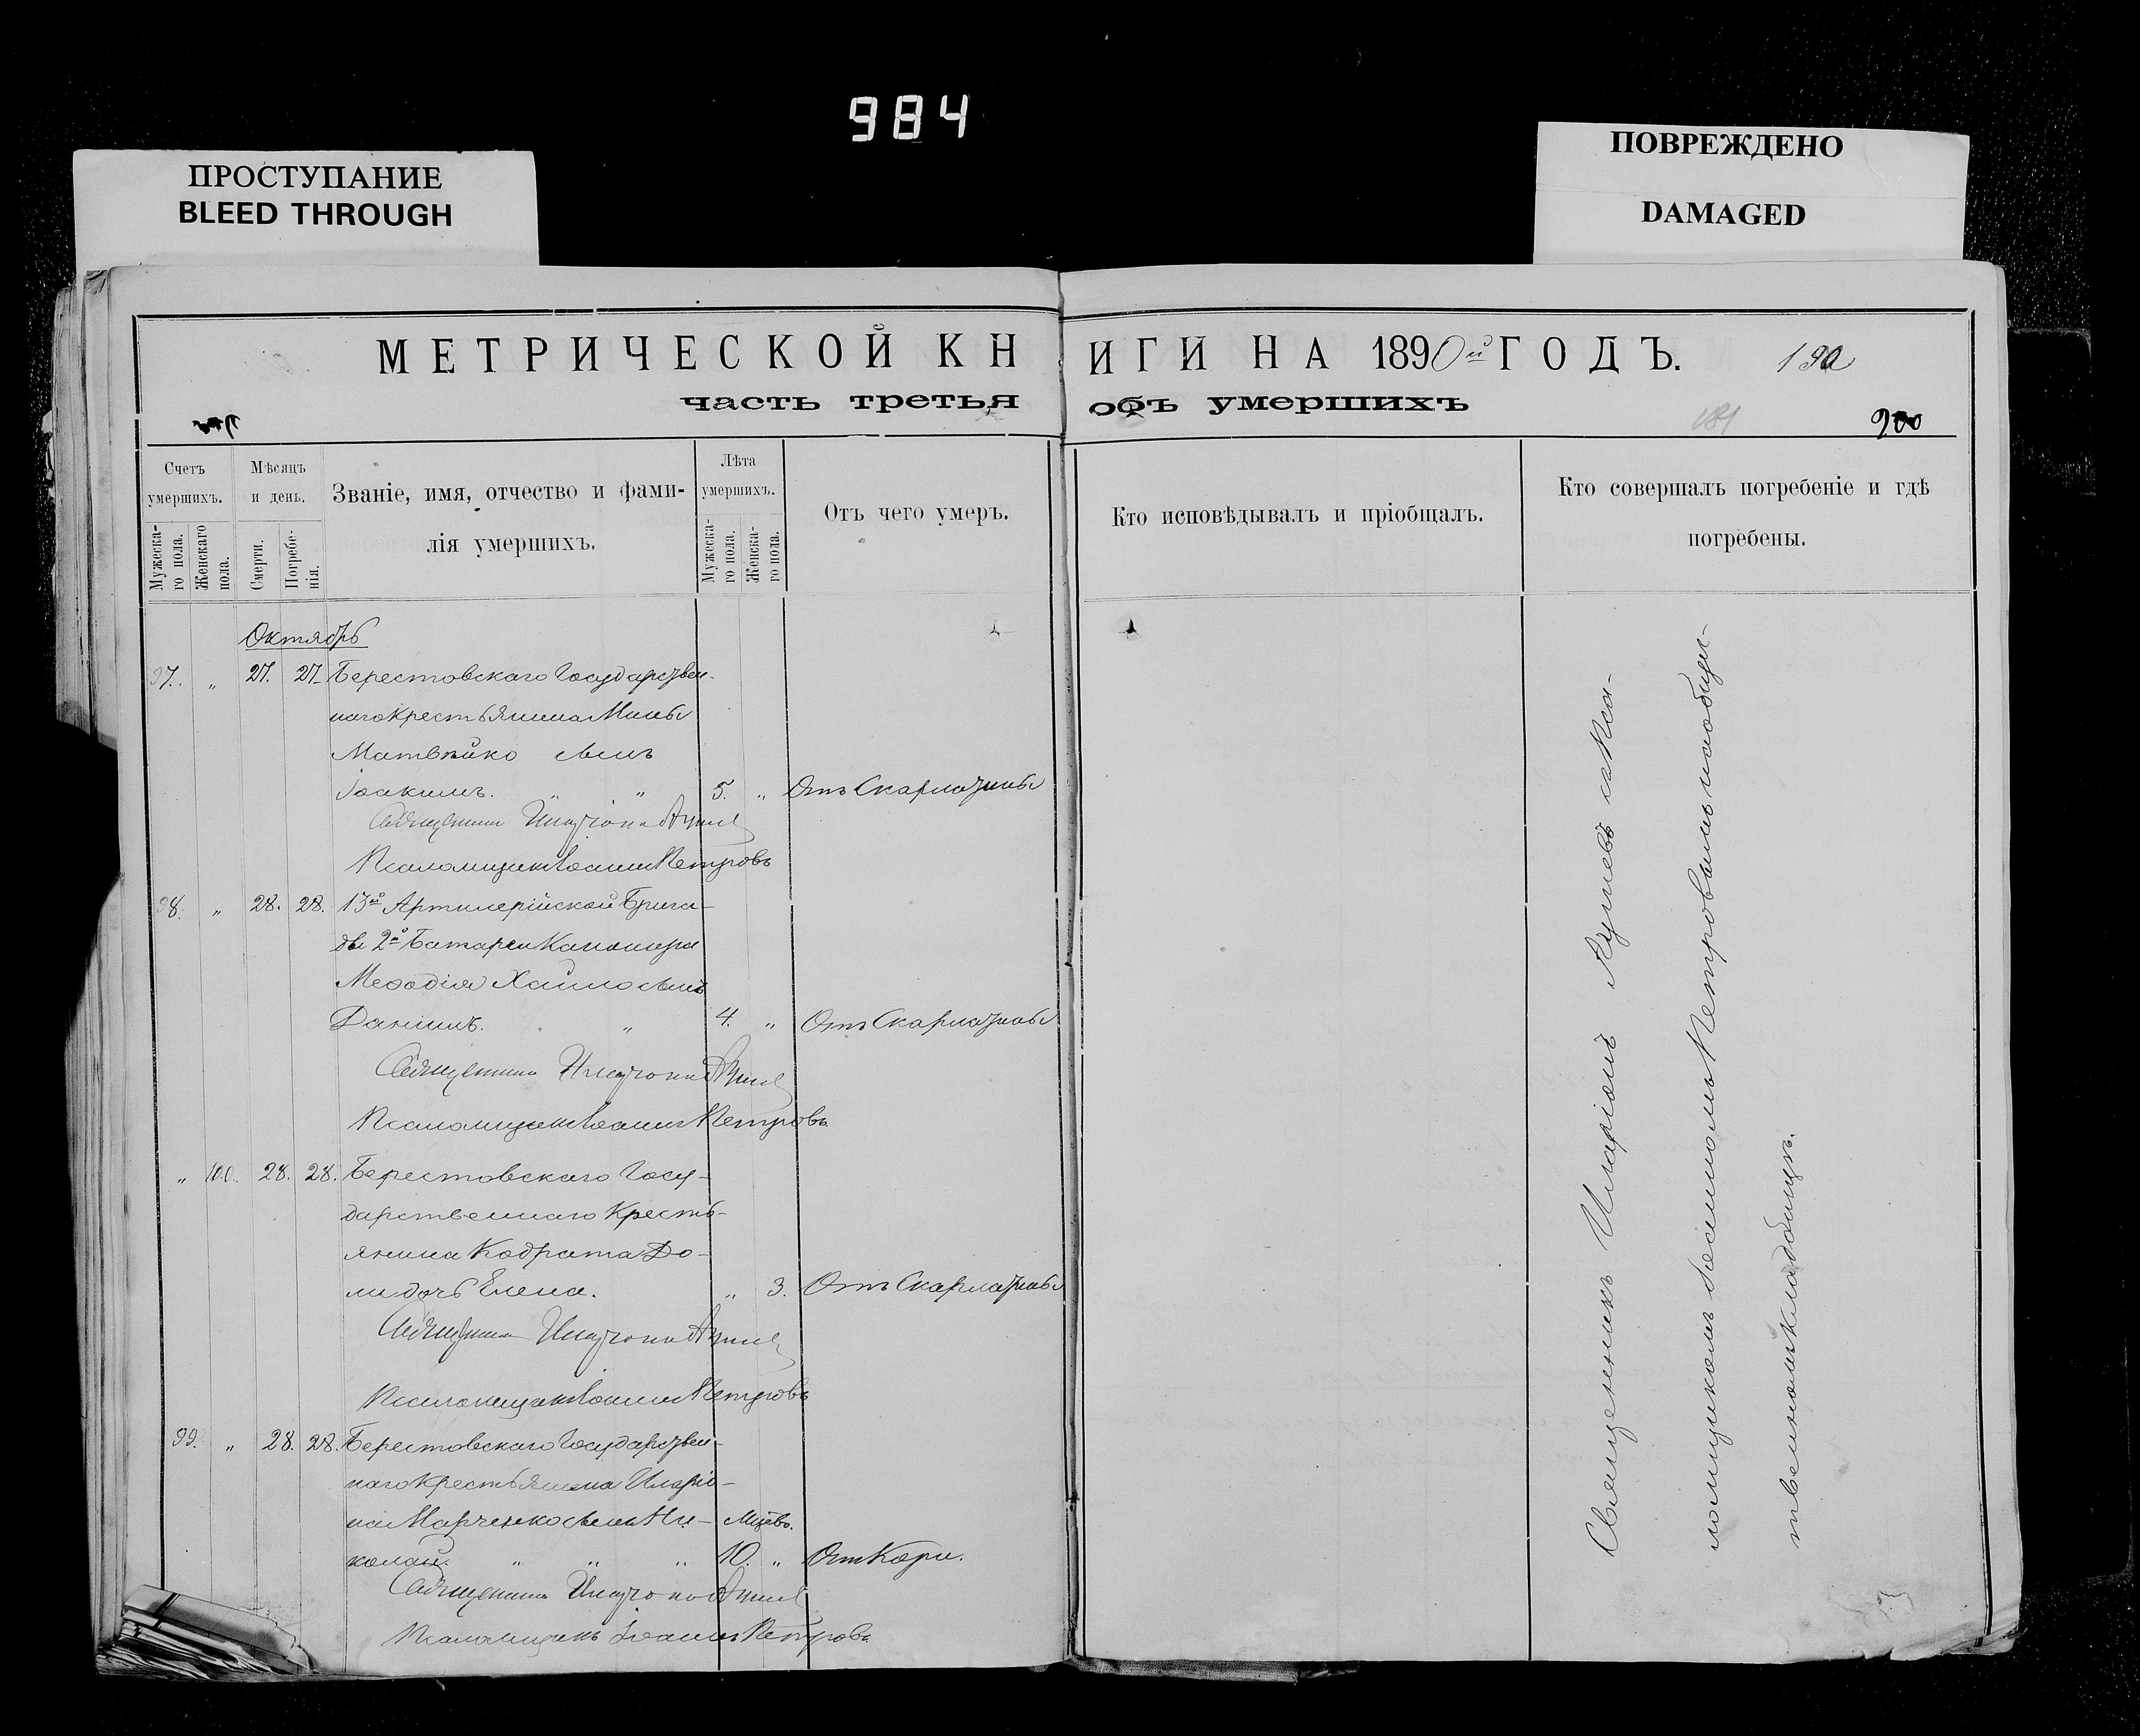 984
ПРОСТУПАНИЕ
BLEED THROUGH
ПОВРЕЖДЕНО
DAMAGED
МЕТРИЧЕСКОЙ КНИГИ НА 1890й ГОДЪ.
190
часть третья объ умершихъ
181
900
Счетъ умершихъ.
Мужеска-
го пола.
Женскаго
пола.
Мѣсяцъ
и день.
Смерти.
Погребе-
нія.
Званіе, имя, отчество и фами-
лія умершихъ.
Лѣта
умершихъ.
Мужеска-
го пола.
Женска-
го пола.
Отъ чего умеръ.
Кто исповѣдывалъ и пріобщалъ.
Кто совершалъ погребеніе и гдѣ
погребены.
Октябрь
97. „ 27. 27. Берестовскаго Государствен-
наго крестьянина Мины
Матвѣйко сынъ
Іоакимъ. „ „ 5. „ Отъ Скарлатины
Священникъ Иларіонъ Лушевъ
Псаломщикъ Іоаннъ Петровъ
98. „ 28. 28. 13й Артилерійской Брига-
ды 2й Батареи Канонера
Меѳодія Хаймо сынъ
Даніилъ. „ „ 4. „ Отъ Скарлатины
Священникъ Иларіонъ Лушевъ
Псаломщикъ Іоаннъ Петровъ
„ 100. 28. 28. Берестовскаго Госу-
дарственнаго Кресть-
янина Кодрата До-
ли дочь Елена. „ 3. Отъ Скарлатины
Священникъ Иларіонъ Лушевъ
Псаломщикъ Іоаннъ Петровъ
99. „ 28. 28. Берестовскаго Государствен-
наго крестьянина Иларіо-
на Марченко сынъ Ни-
колай. „ „ „ Мцевъ. 10. „ Отъ Кори.
Священникъ Иларіонъ Лушевъ
Псаломщикъ Іоаннъ Петровъ
Священникъ Иларіонъ Лушевъ съ Пса-
ломщикомъ Іоанномъ Петровымъ на общес-
твенномъ кладбищѣ.